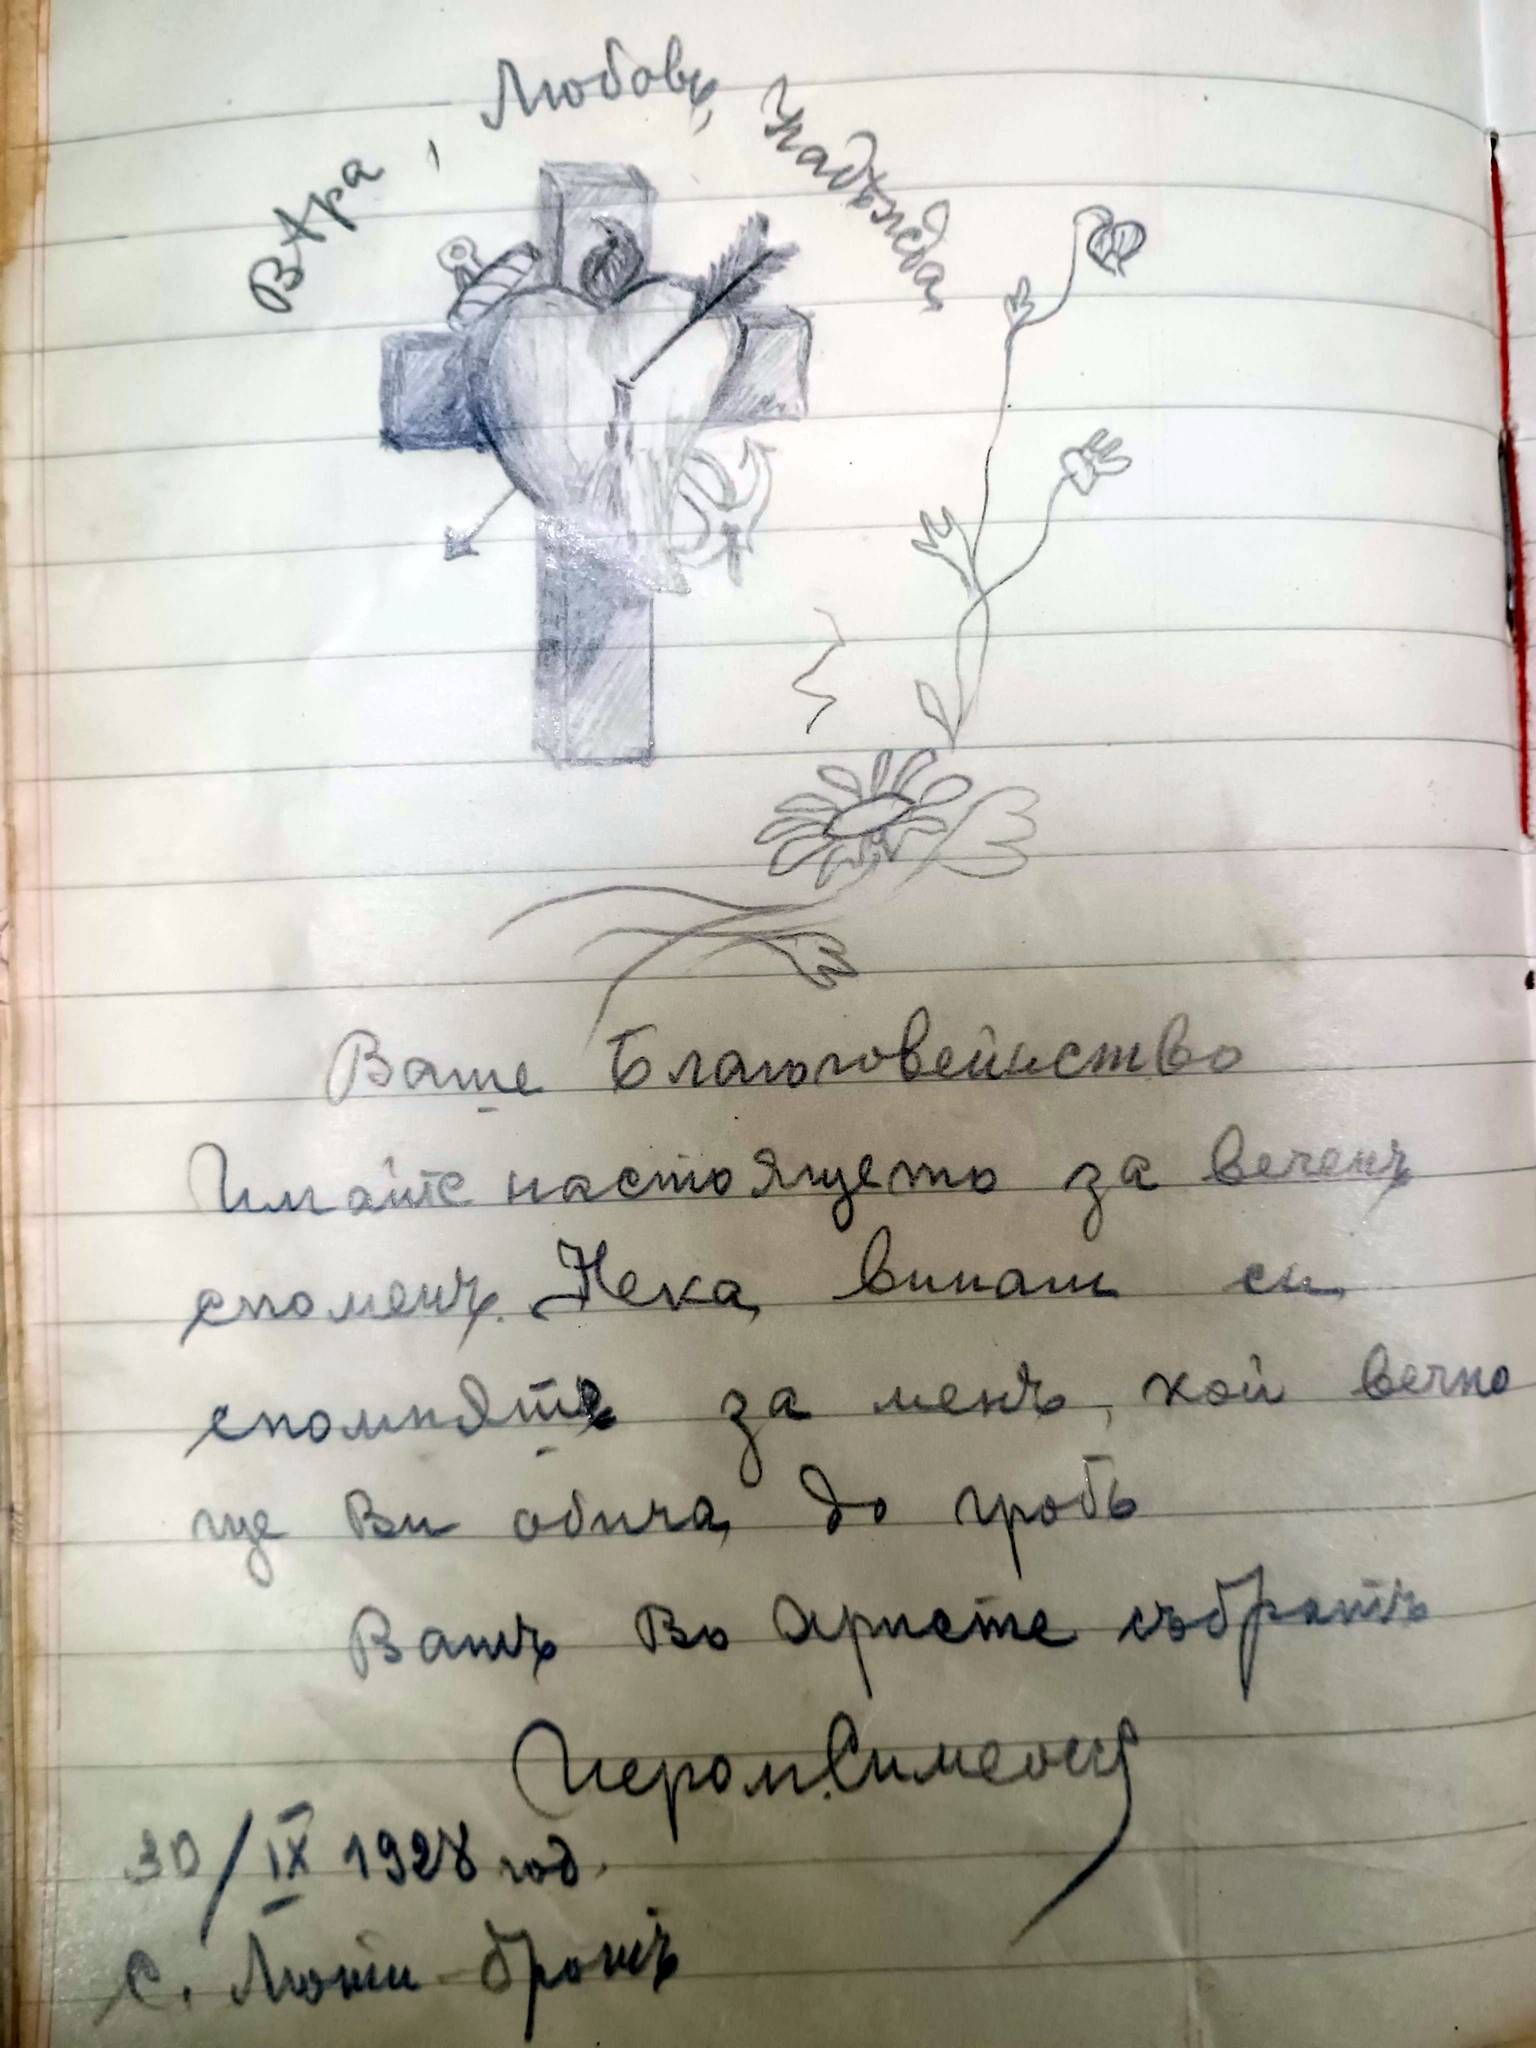 Вѣра, Любовь, Надѣжда
Ваше Благоговейнство
Имайте настоящето за веченъ
споменъ. Нека винаги си
спомняте за менъ, кой вечно
ще Ви обича до гробъ
Вашъ Во Христе събратъ
Иером. Симеонъ
30/IX 1928 год.
с. Люти-бротъ